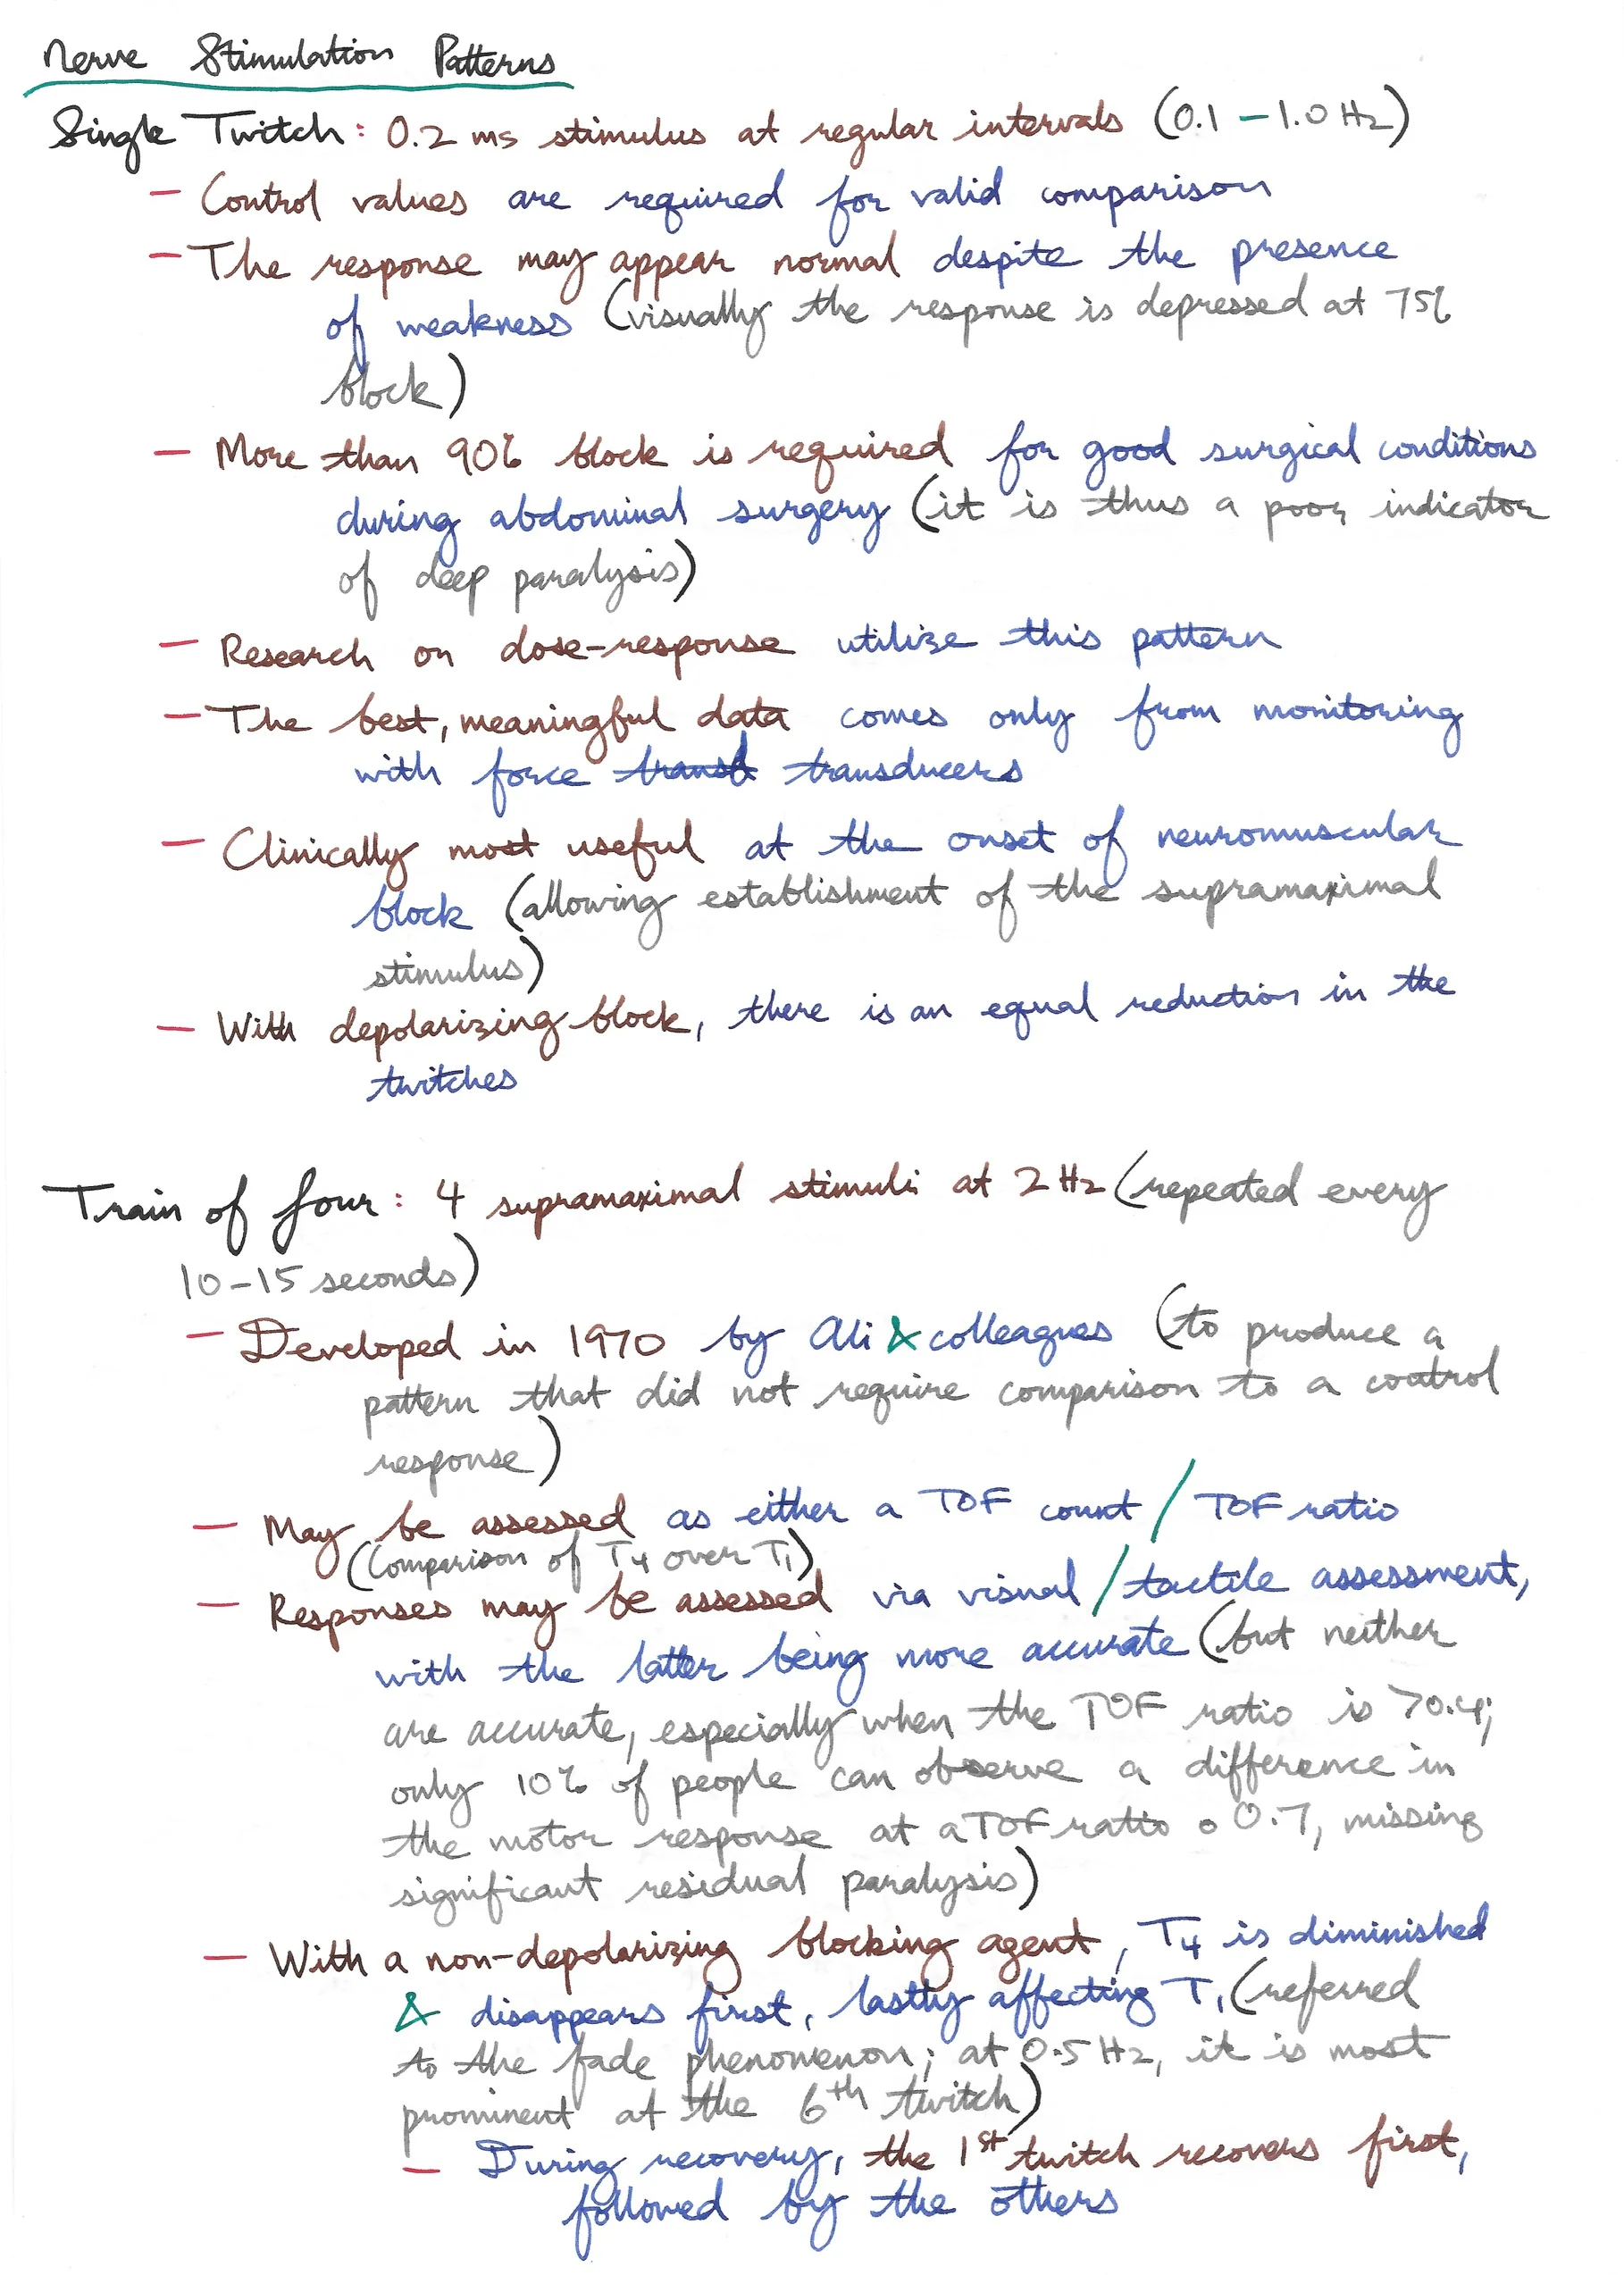 Nerve Stimulation Patterns
Single Twitch: 0.2 ms stimulus at regular intervals (0.1 – 1.0 Hz)
– Control values are required for valid comparison
– The response may appear normal despite the presence
of weakness (visually the response is depressed at 75%
block)
– More than 90% block is required for good surgical conditions
during abdominal surgery (it is thus a poor indicator
of deep paralysis)
– Research on dose-response utilize this pattern
– The best, meaningful data comes only from monitoring
with force transducers
– Clinically most useful at the onset of neuromuscular
block (allowing establishment of the supramaximal
stimulus)
– With depolarizing block, there is an equal reduction in the
twitches
Train of four: 4 supramaximal stimuli at 2 Hz (repeated every
10–15 seconds)
– Developed in 1970 by Ali & colleagues (to produce a
pattern that did not require comparison to a control
response)
– May be assessed as either a TOF count / TOF ratio
(Comparison of T4 over T1)
– Responses may be assessed via visual / tactile assessment,
with the latter being more accurate (but neither
are accurate, especially when the TOF ratio is >0.4;
only 10% of people can observe a difference in
the motor response at a TOF ratio o 0.7, missing
significant residual paralysis)
– With a non-depolarizing blocking agent, T4 is diminished
& disappears first, lastly affecting T1 (referred
to the fade phenomenon; at 0.5 Hz, it is most
prominent at the 6th twitch)
– During recovery, the 1st twitch recovers first,
followed by the others